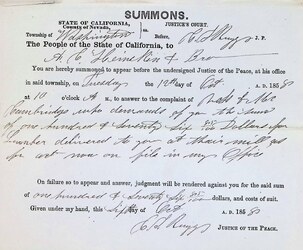 SUMMONS.
STATE OF CALIFORNIA,
County of Nevada,
JUSTICE'S COURT.
Township of Washington
J. P.
The People of the State of California, to
You are hereby summoned to appear before the undersigned Justice of the Peace, at his office
in said township, on Tuesday the 12th day of Oct A. D. 1858
at 10 o'clock A M., to answer to the complaint of
who demands of you the sum
of one hundred & seventy six Dollars for
lumber delivered to you at their mill as
now on file in my office
On failure so to appear and answer, judgment will be rendered against you for the said sum
of one hundred & seventy six dollars, and costs of suit.
Given under my hand, this day of Oct A. D. 1858
JUSTICE OF THE PEACE.